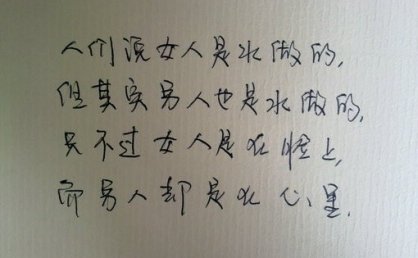 人们说女人是水做的,
但其实男人也是水做的,
只不过女人是在脸上,
而男人却是在心里.